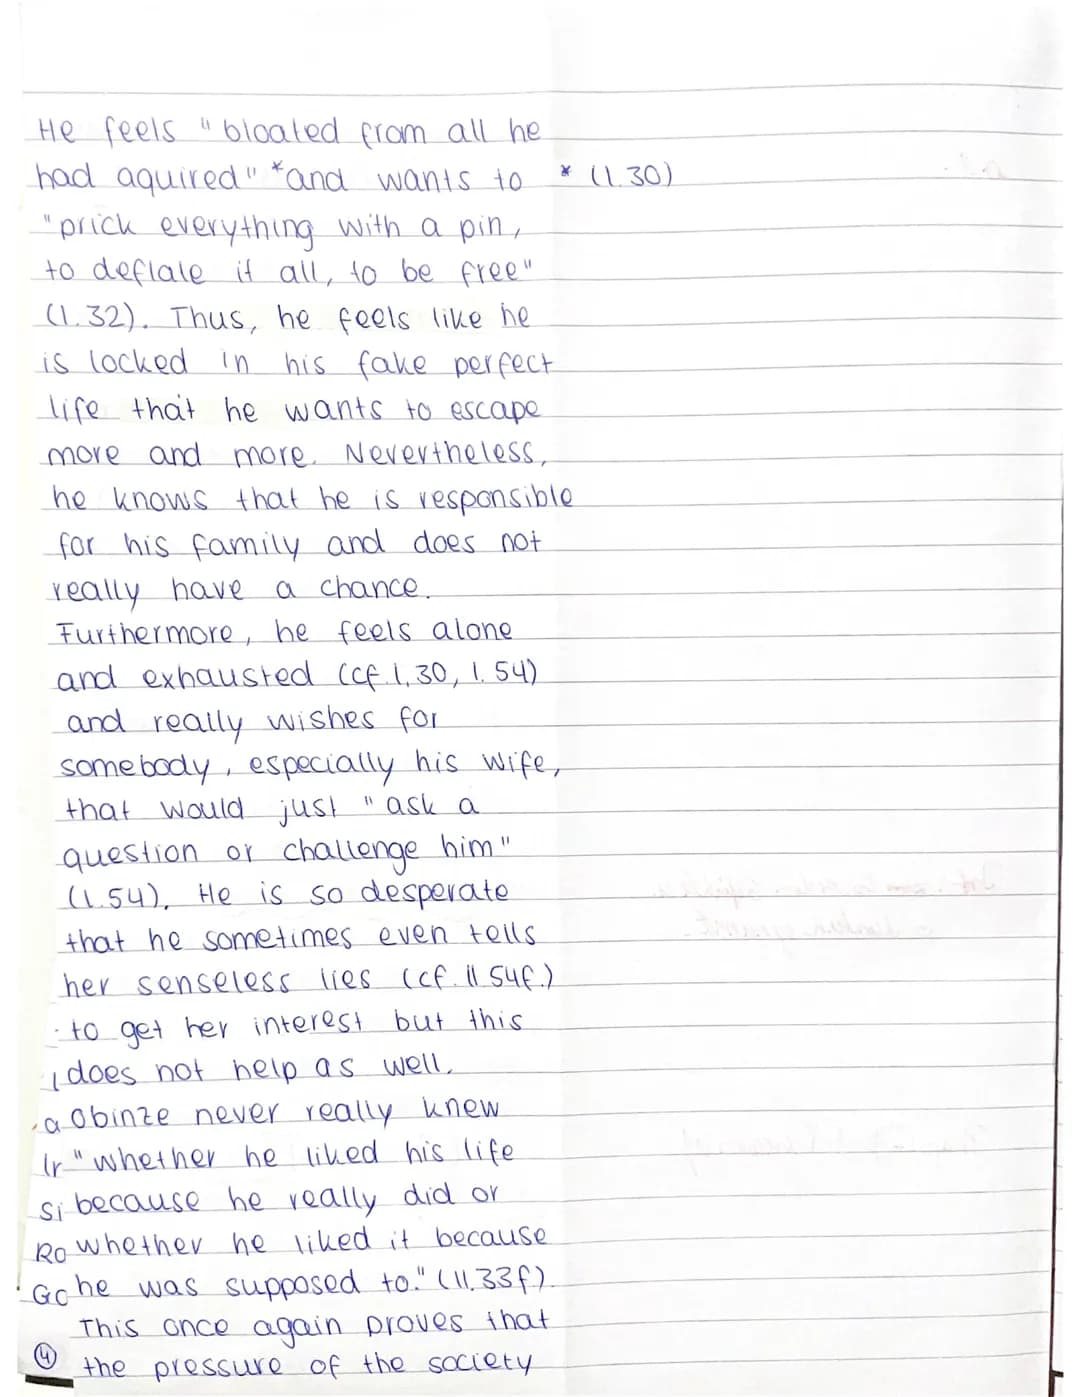 He feels "bloated from all he
had aquired" *and wants to * (l.30)
"prick everything with a pin,
to deflate it all, to be free"
(l.32). Thus, he feels like he
is locked in his fake perfect
life that he wants to escape
more and more. Nevertheless,
he knows that he is responsible
for his family and does not
really have a chance.
Furthermore, he feels alone
and exhausted (cf. l.30, l.54)
and really wishes for
somebody, especially his wife,
that would just "ask a
question or challenge him"
(l.54). He is so desperate
that he sometimes even tells
her senseless lies (cf. ll.54f.)
to get her interest but this
does not help as well.
a Obinze never really knew
Ir "whether he liked his life
si because he really did or
Ro whether he liked it because
Go he was supposed to." (ll.33f).
This once again proves that
4 the pressure of the society